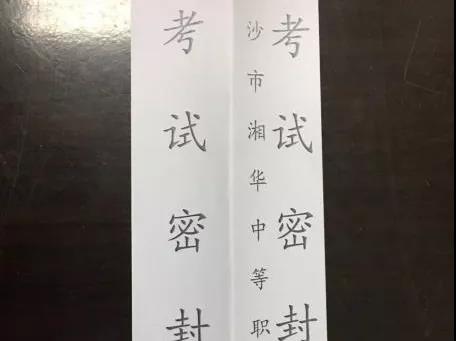 考试密封
沙市湘华中等职
考试密封